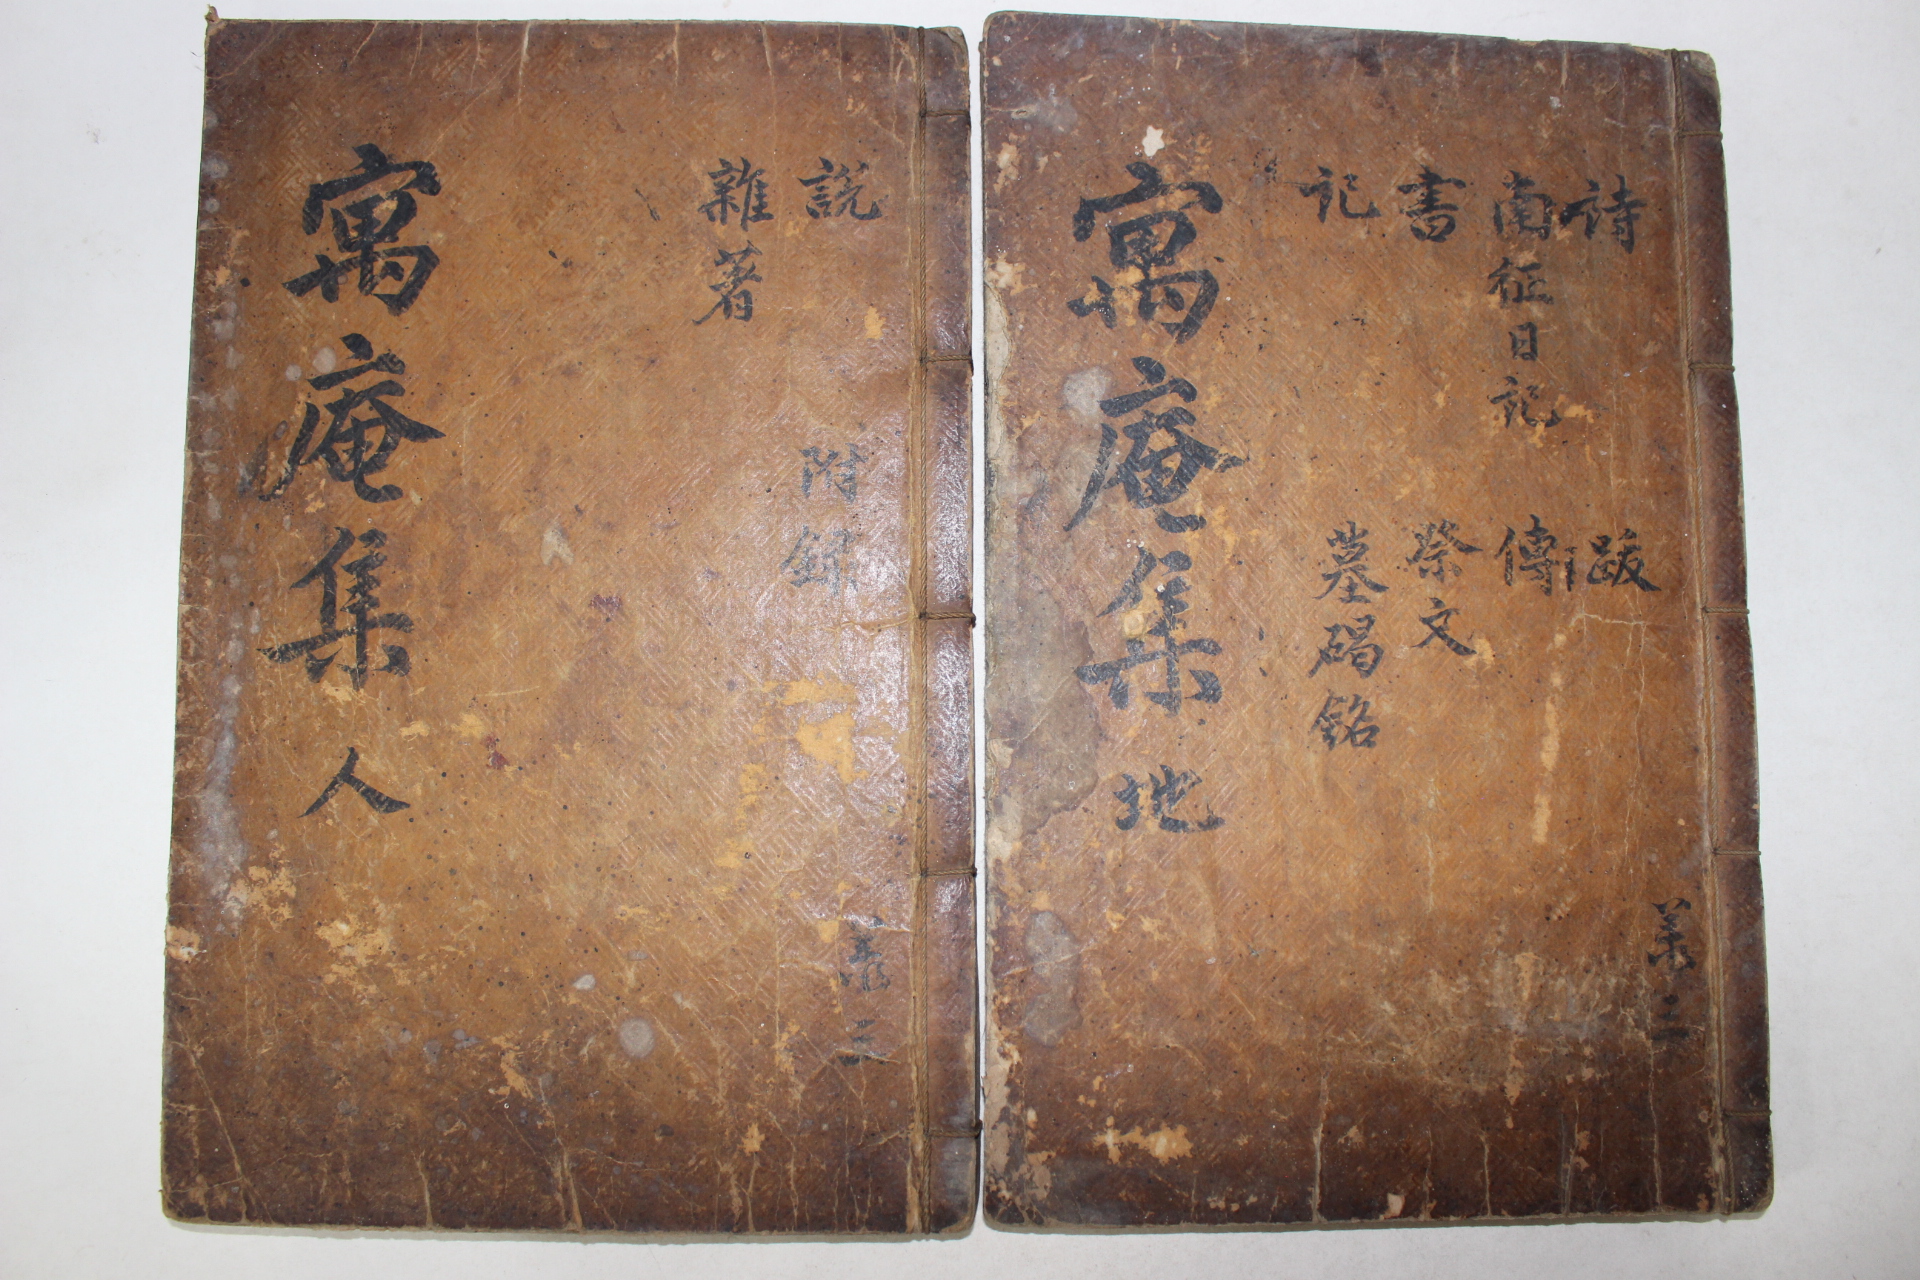 詩
南征日記
書
記
跋
傳
祭文
墓碣銘
寓庵集 地
共三
說
雜著
附錄
寓庵集 人
共三